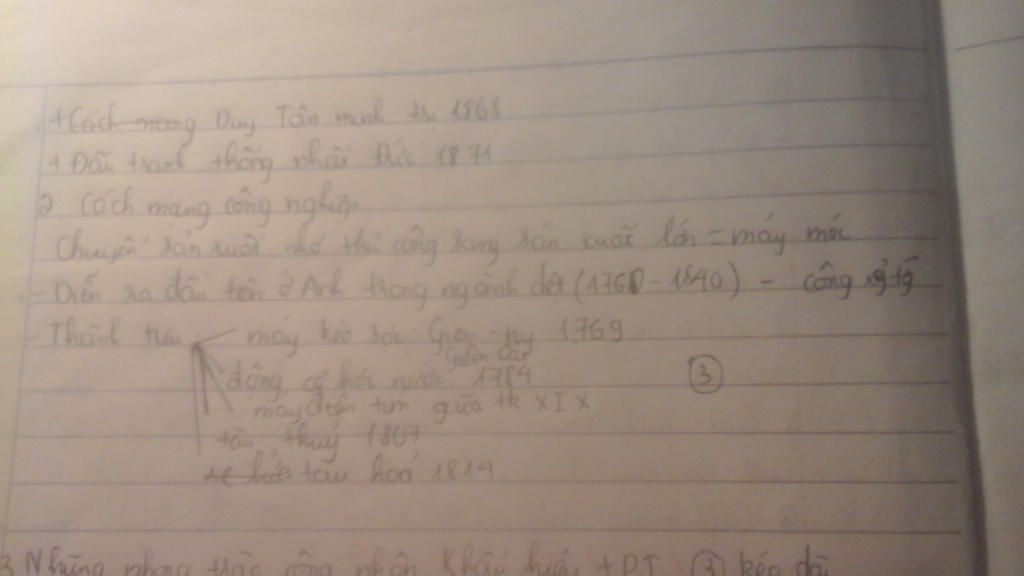 + Cách mạng Duy Tân minh trị 1868
+ Đấu tranh thống nhất Đức 1871
2 Cách mạng công nghiệp
Chuyển sản xuất nhỏ thủ công sang sản xuất lớn = máy móc
- Diễn ra đầu tiên ở Anh trong ngành dệt (1760 - 1840) - công
- Thành tựu máy kéo sợi Gien-ny 1769
động cơ hơi nước 1784
máy điện tín giữa tk XIX
③
tàu thuỷ 1807
tàu hoả 1814
3 Những phong trào công nhân Khẩu hiệu + PT ③ kéo dài